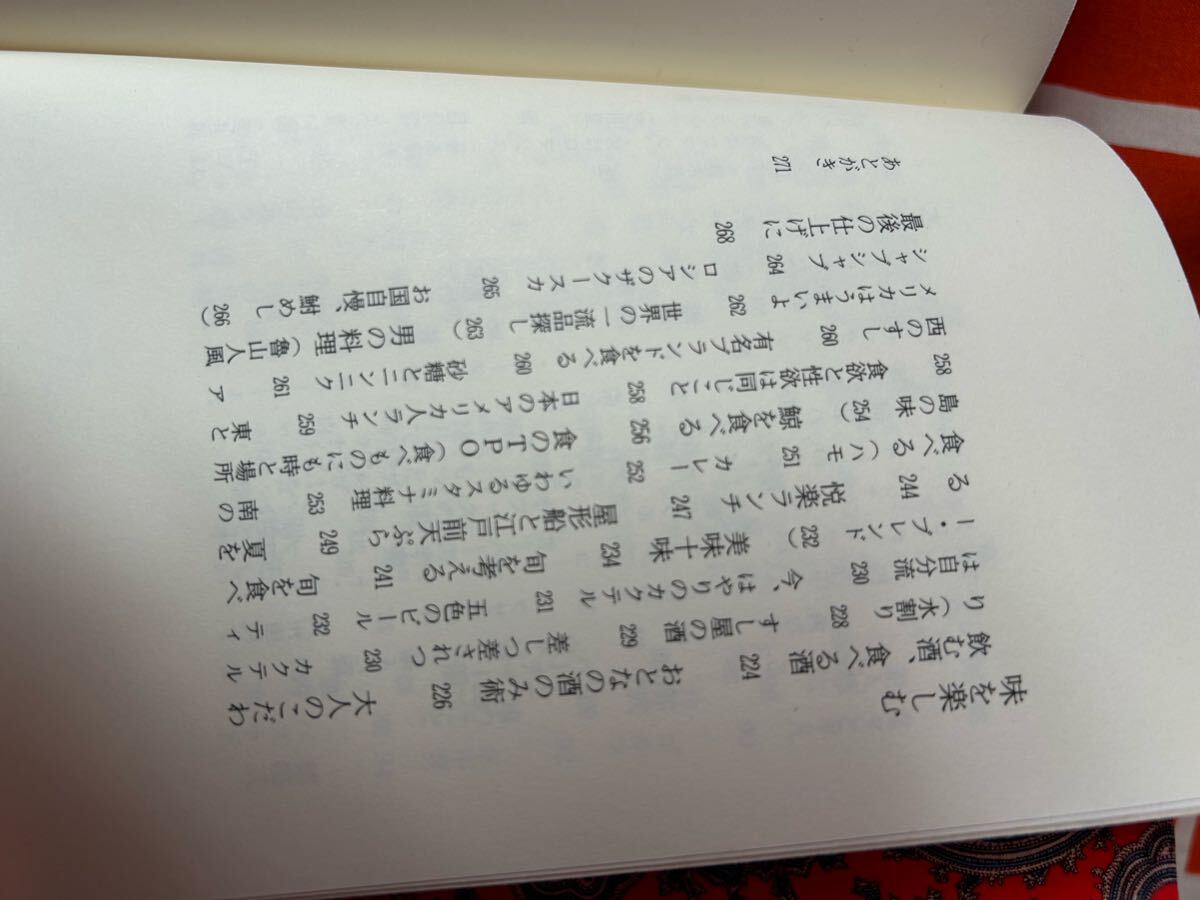 味を楽しむ
飲む酒、食べる酒 224 おとなの酒のみ術 226 大人のこだわ
り（水割り 228 すし屋の酒 229 差しつ差されつ 230 カクテル
は自分流 230 今、はやりのカクテル 231 五色のビール 232 ティ
ー・ブレンド 232） 美味十味 234 旬を考える 241 旬を食べ
る 244 悦楽ランチ 247 屋形船と江戸前天ぷら 249 夏を
食べる（ハモ 251 カレー 252 いわゆるスタミナ料理 253 南の
島の味 254） 鯨を食べる 256 食のTPO（食べものにも時と場所
258 食欲と性欲は同じこと 258 日本のアメリカ人ランチ 259 東と
西のすし 260 有名ブランドを食べる 260 砂糖とニンニク 261 ア
メリカはうまいよ 262 世界の一流品探し 263） 男の料理（魯山人風
シャブシャブ 264 ロシアのザクースカ 265 お国自慢、鮒めし 266）
最後の仕上げに 268
あとがき 271